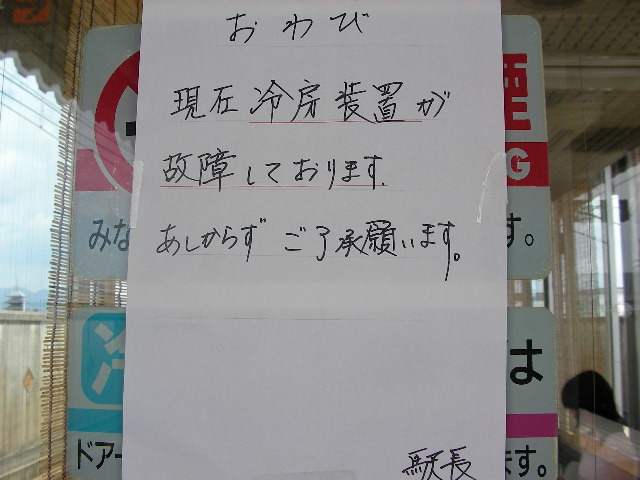 おわび
現在冷房装置が
故障しております.
あしからずご了承願います。
駅長
煙
G
みな
す。
冷
は
ドアー
ます。